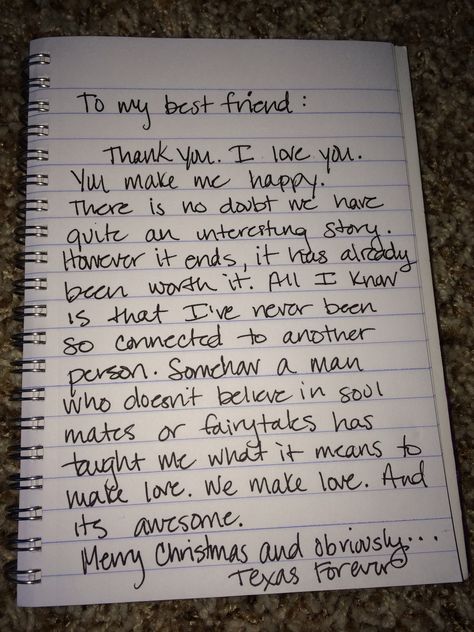 To my best friend:
Thank you. I love you.
You make me happy.
There is no doubt we have
quite an interesting story.
However it ends, it has already
been worth it. All I know
is that I've never been
so connected to another
person. Somehow a man
who doesn't believe in soul
mates or fairytales has
taught me what it means to
make love. We make love. And
its awesome.
Merry Christmas and obviously...
Texas Forever